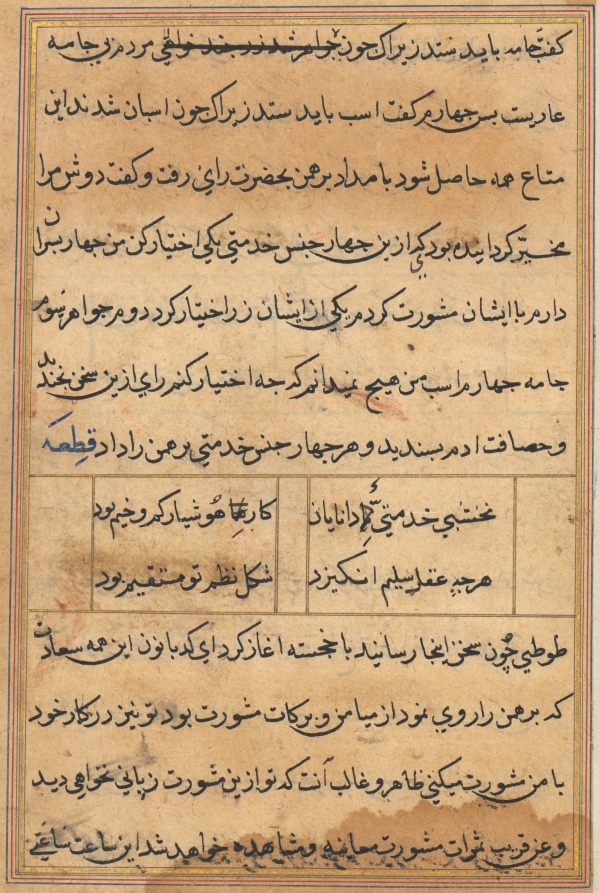 کفت جامه باید ستد زیراک جون جواهر شد زر جند خواهی مردم بی جامه
عاریست بس جهارم کفت اسب باید ستد زیراک جون اسبان شدند این
متاع همه حاصل شود بامداد برهمن بحضرت رای رفت و کفت دوش مرا
مخیّر کردانیده بود کی ازین جهار جنس خدمتی یکی اختیار کن من جهار بسران
دارم با ایشان مشورت کردم یکی از ایشان زر اختیار کرد دوم جواهر سوم
جامه جهارم اسب من هیج نمیدانم که جه اختیار کنم رای ازین سخن بخندید
و حصافت ادم بسندید و هر جهار جنس خدمتی برهمن را داد قطعه
نخشبی خدمتی دانایان کارها هوشیار کم و خم بود
هرجه عقل سلیم انکیزد شکل نظم تو مستقیم بود
طوطی چون سخن اینجا رسانید با خجسته اغاز کرد ای کدبانو این همه سعادت
که برهمن را روی نمود از میامن و برکات مشورت بود تو نیز در کار خود
با من مشورت میکنی ظاهر و غالب آنت که تو ازین مشورت زیانی نخواهی دید
و عن قریب ثمرات مشورت معاینه و مشاهده خواهد شد این ساعت ساعتی